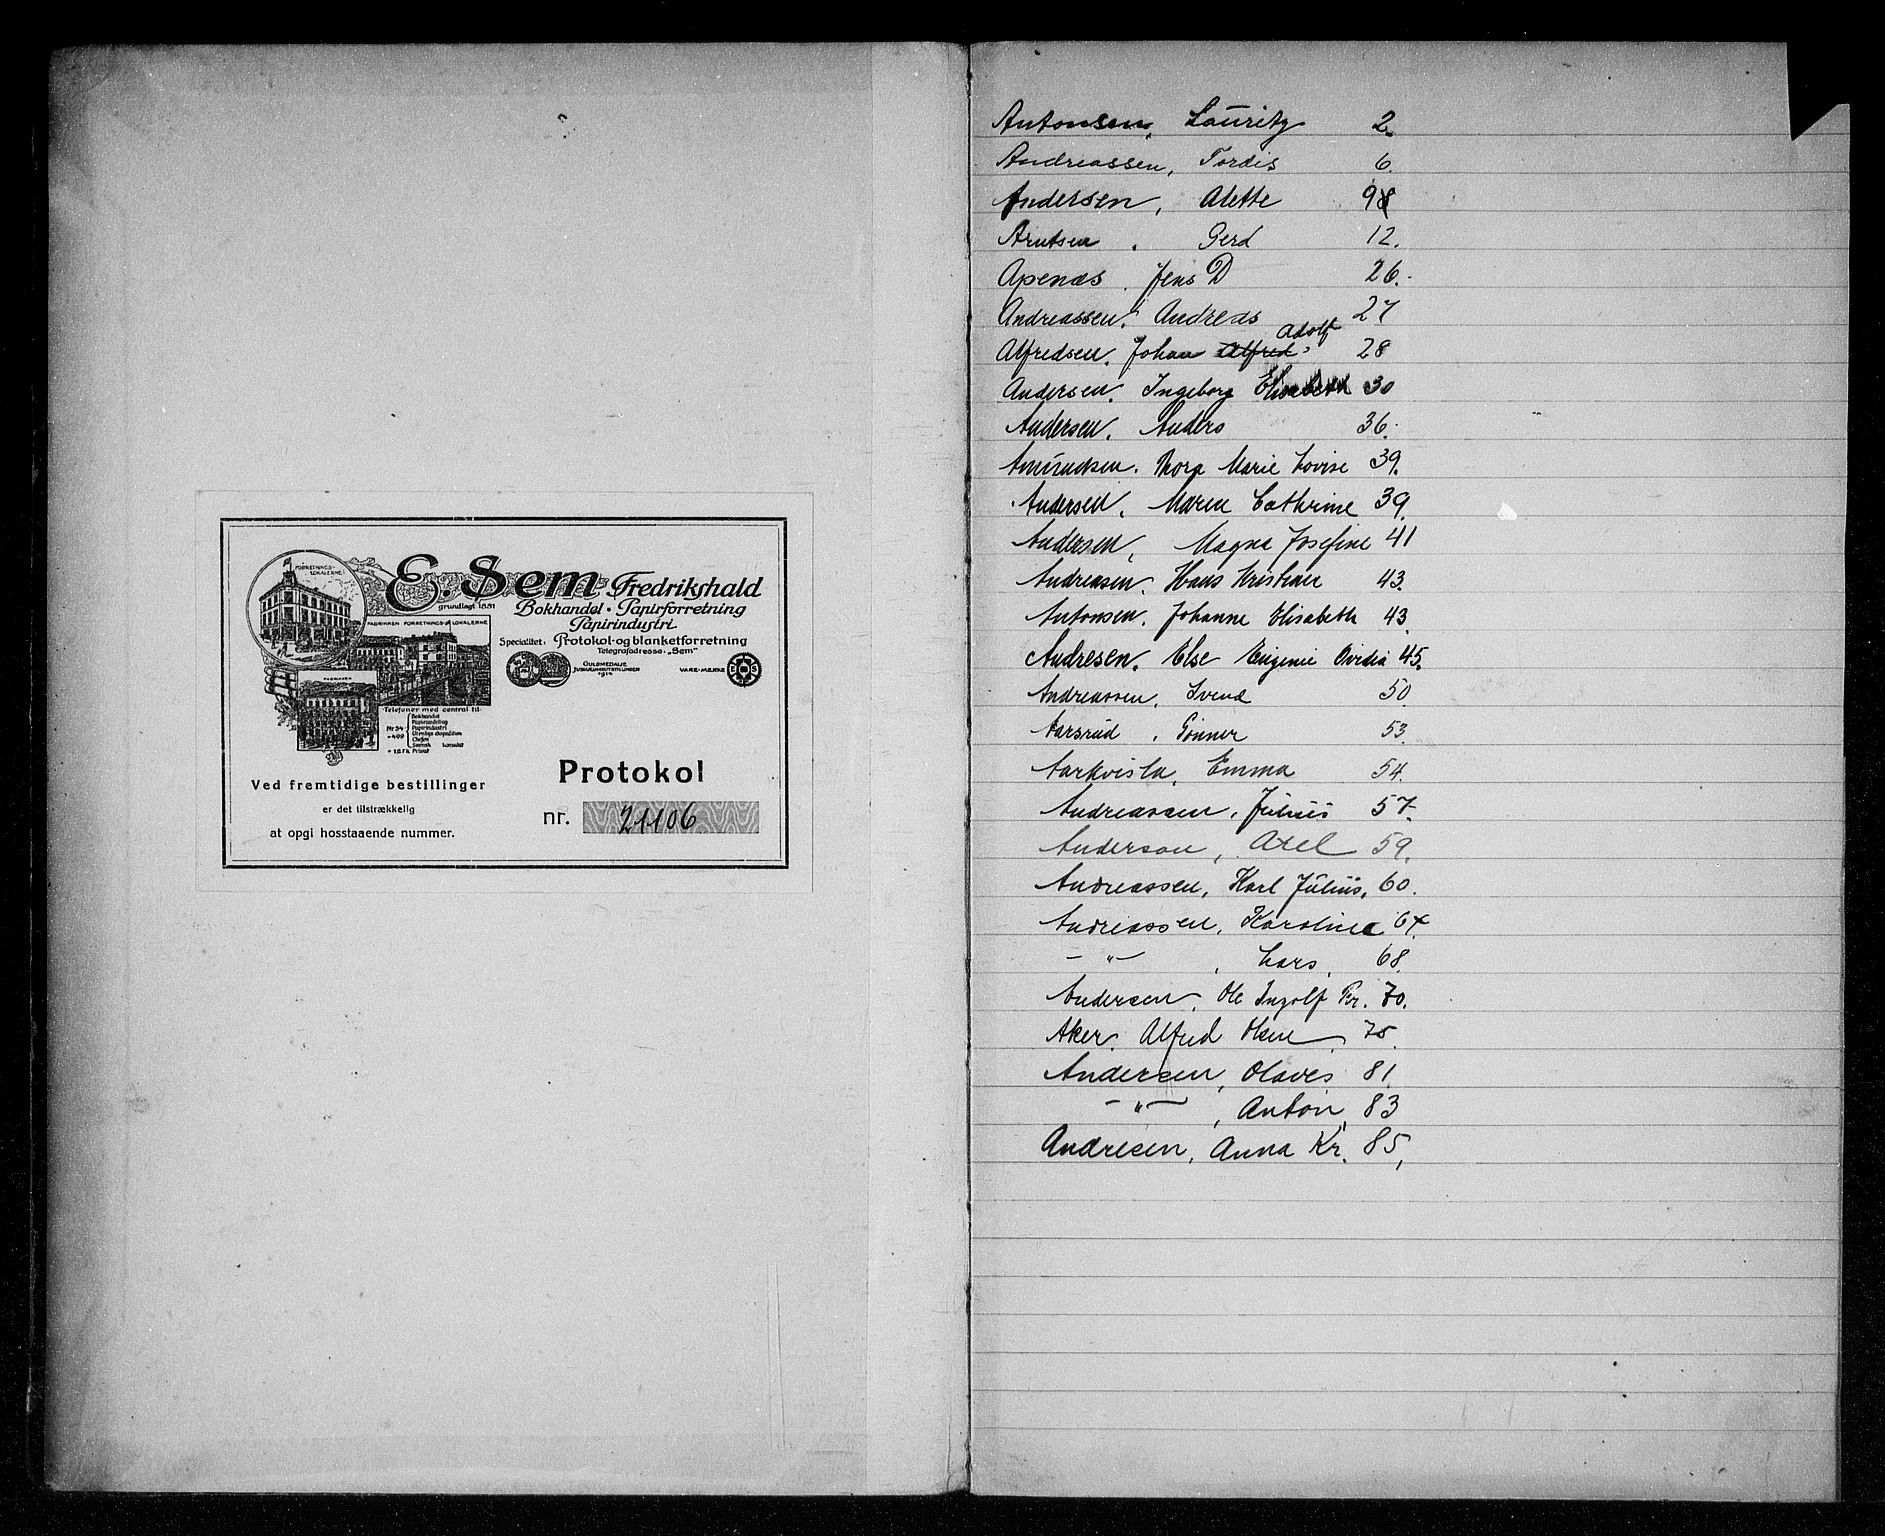 FORRETNINGS-
LOKALERNE
E. Sem Fredrikshald
grundlagt 1851
Bokhandel • Papirforretning
Papirindustri
FABRIKKEN FORRETNINGS-LOKALERNE
Specialitet: Protokol-og blanketforretning
Telegrafadresse: „Sem"
GULDMEDALJE
JUBILÆUMSUTSTILLINGEN
1914
VARE-MERKE
E S
FABRIKKEN
Telefoner med central til:
Bokhandel
Nr 54
Papirindustri
Utenbys ekspedition
- 499
Chefen
Svensk konsulat
Privat
Ved fremtidige bestillinger
er det tilstrækkelig
at opgi hosstaaende nummer.
Protokol
nr. 21106
Antonsen, Lauritz 2.
Andreassen, Tordis 6.
Andersen, Alette 98
Arntsen, Gerd 12.
Apenæs, Jens D 26.
Andreassen, Andreas 27
Alfredsen, Johan Alfred Adolf 28
Andersen, Ingeborg Elisabeth 30
Andersen, Anders 36.
Amundsen, Thora Marie Lovise 39.
Andersen, Maren Cathrine 39.
Andersen, Magna Josefine 41
Andreasen, Hans Kristian 43.
Antonsen, Johanne Elisabeth 43
Andresen, Else Eugenie Ovidia 45.
Andreassen, Svend 50.
Aarsrud, Gunner 53.
Aarkvisla, Emma 54.
Andreassen, Julius 57.
Anderson, Axel 59.
Andreassen, Karl Julius, 60.
Andreassen, Karoline 64.
- " - , Lars, 68.
Andersen, Ole Ingolf Kr. 70.
Aker, Alfred Olsen, 75.
Andersen, Olaves 81.
- " - , Anton, 83
Andresen, Anna Kr. 85,